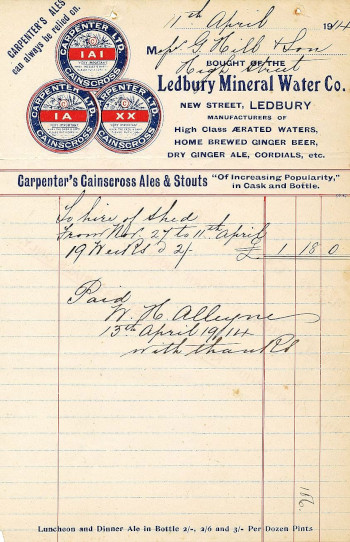 CARPENTER'S ALES
can always be relied on.
CARPENTER LTD.
IAI
CAINSCROSS
CARPENTER LTD.
IA
CAINSCROSS
CARPENTER LTD.
XX
CAINSCROSS
11th April 1914
Messrs G Hill & Son
High Street
BOUGHT OF THE
Ledbury Mineral Water Co.
NEW STREET, LEDBURY
MANUFACTURERS OF
High Class ÆRATED WATERS,
HOME BREWED GINGER BEER,
DRY GINGER ALE, CORDIALS, etc.
Carpenter's Cainscross Ales & Stouts "Of Increasing Popularity," in Cask and Bottle.
To hire of shed
From Nov. 27 to 11th April
19 Weeks @ 2/- £ 1 18 0
Paid
W. H. Alleyne
13th April 19/14
with thanks
Luncheon and Dinner Ale in Bottle 2/-, 2/6 and 3/- Per Dozen Pints